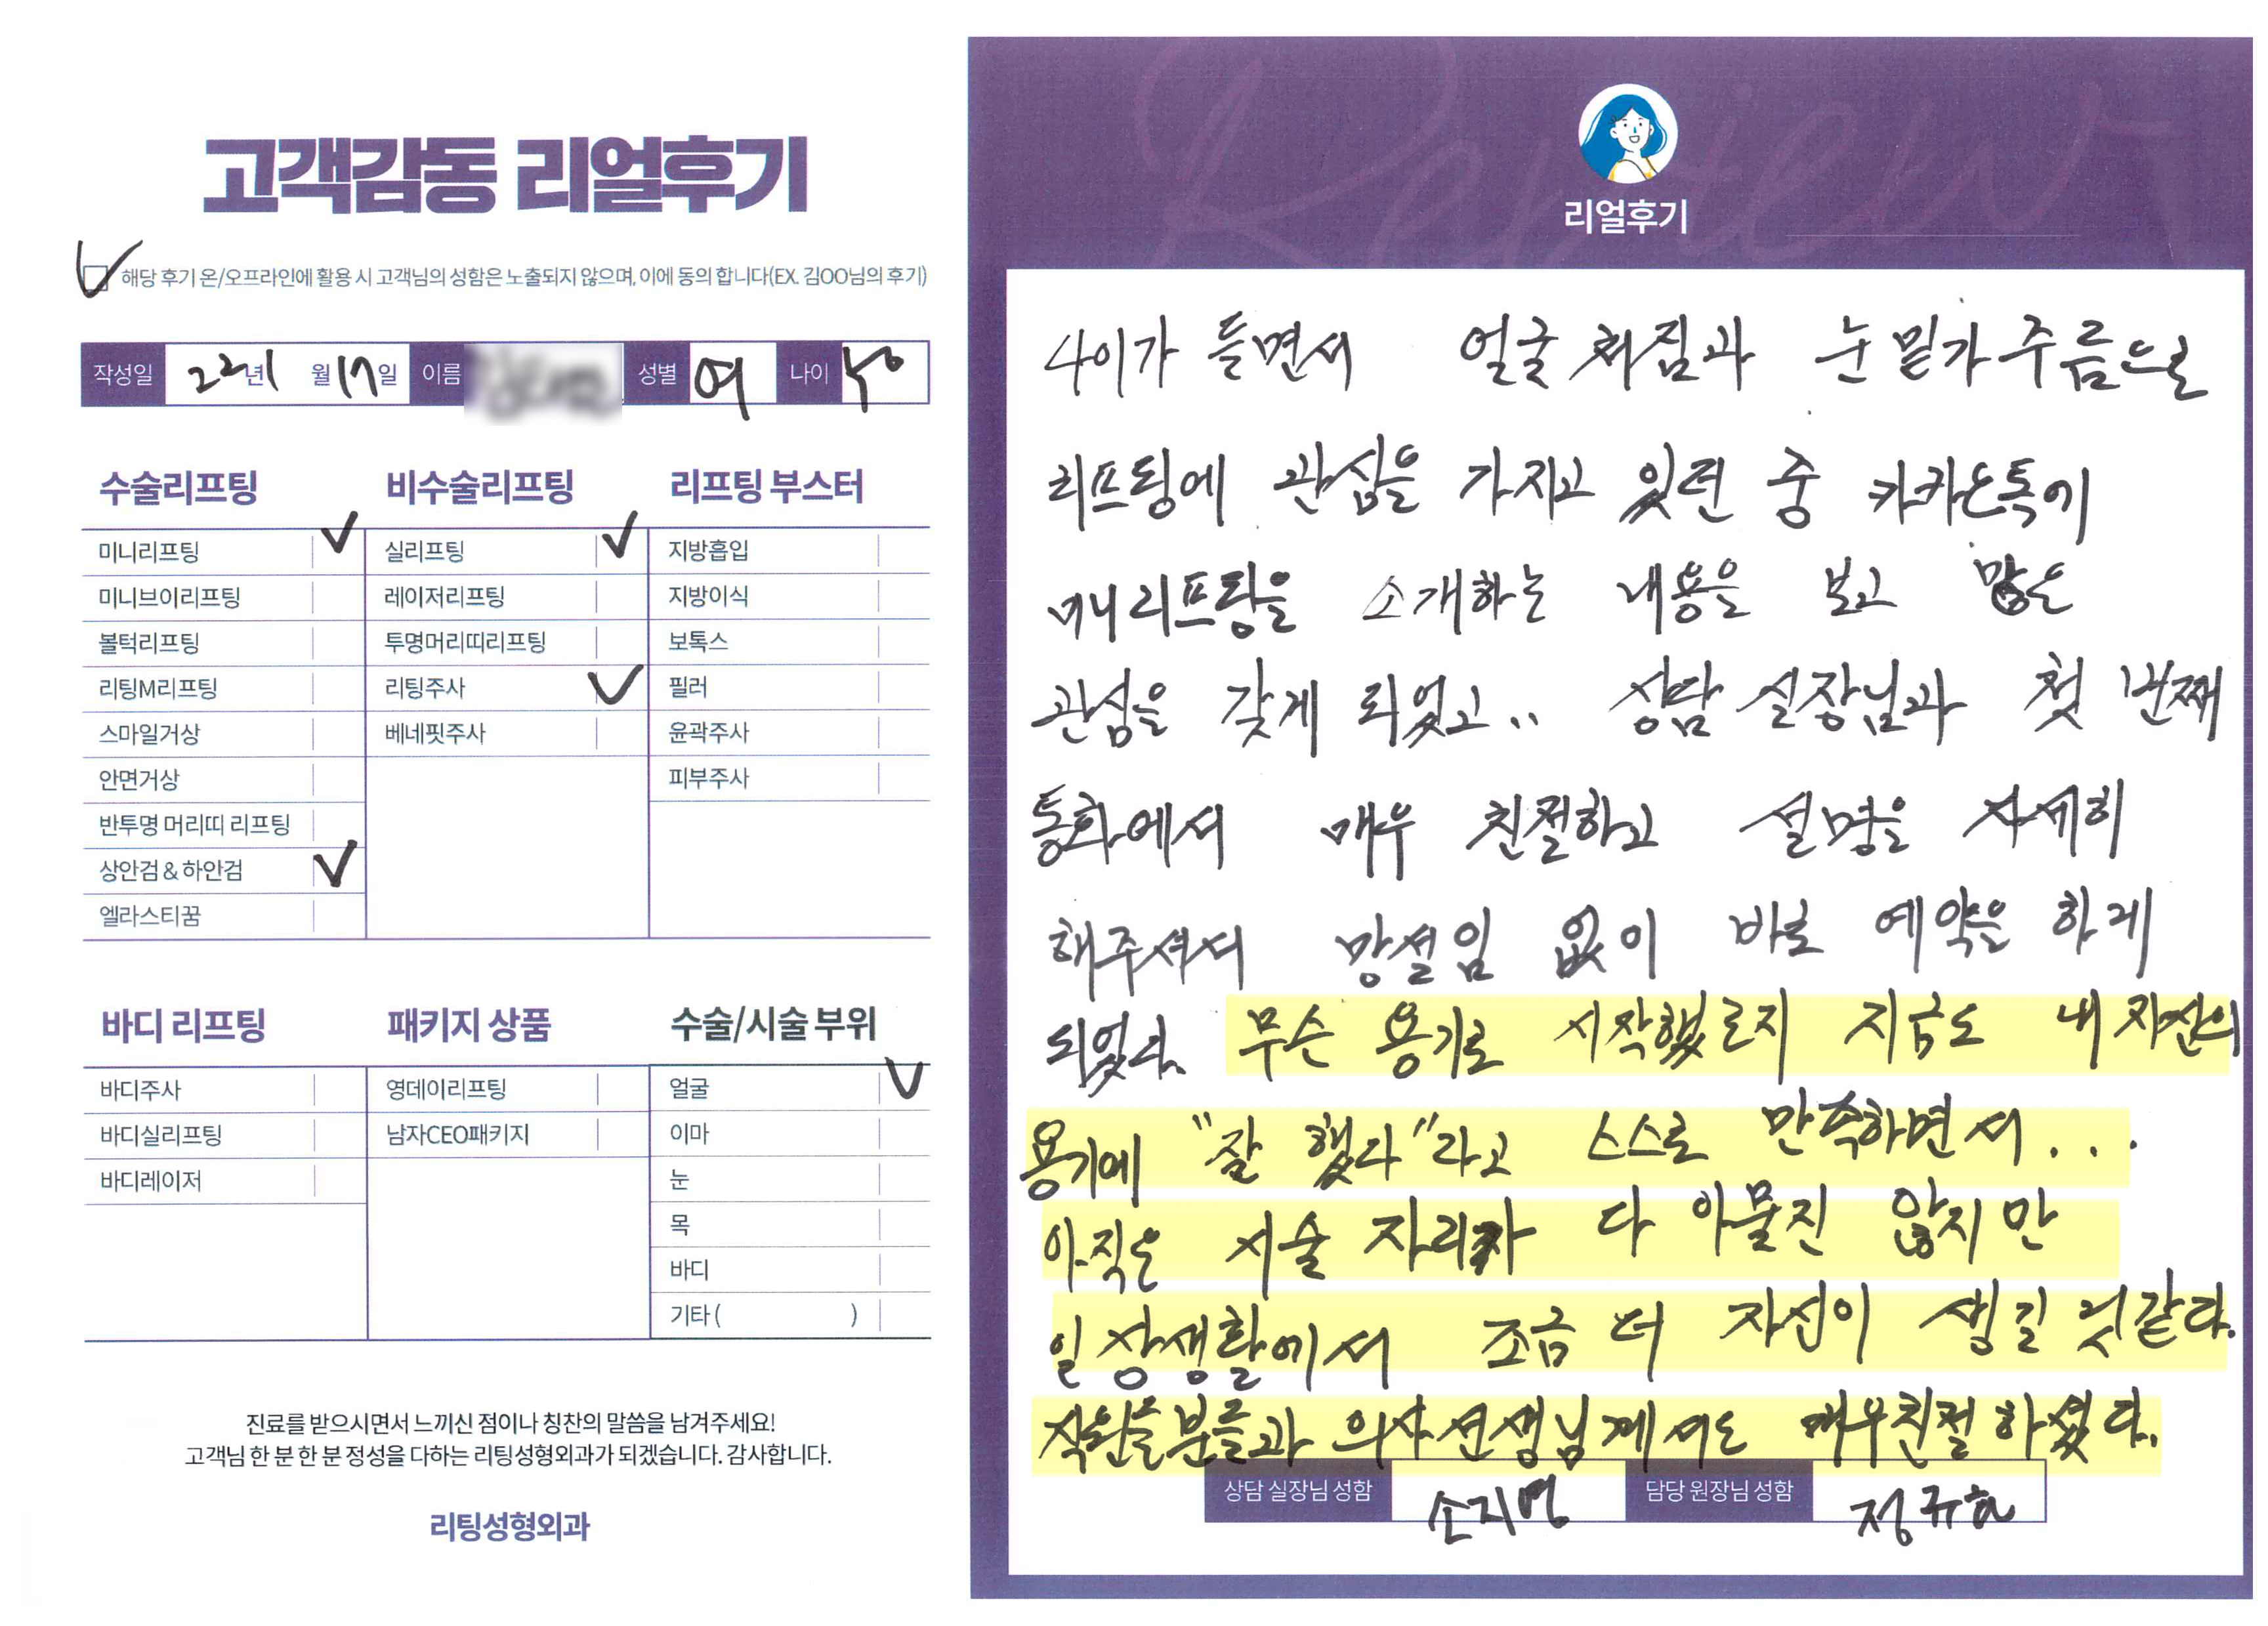 고객감동 리얼후기
해당 후기 온/오프라인에 활용 시 고객님의 성함은 노출되지 않으며, 이에 동의 합니다(EX. 김OO님의 후기)
작성일 22년 1월 17일 이름 성별 여 나이 50
수술리프팅
미니리프팅
미니브이리프팅
볼턱리프팅
리팅M리프팅
스마일거상
안면거상
반투명 머리띠 리프팅
상안검 & 하안검
엘라스티꿈
비수술리프팅
실리프팅
레이저리프팅
투명머리띠리프팅
리팅주사
베네핏주사
리프팅 부스터
지방흡입
지방이식
보톡스
필러
윤곽주사
피부주사
바디 리프팅
바디주사
바디실리프팅
바디레이저
패키지 상품
영데이리프팅
남자CEO패키지
수술/시술 부위
얼굴
이마
눈
목
바디
기타 ( )
진료를 받으시면서 느끼신 점이나 칭찬의 말씀을 남겨주세요!
고객님 한 분 한 분 정성을 다하는 리팅성형외과가 되겠습니다. 감사합니다.
리팅성형외과
Review
리얼후기
나이가 들면서 얼굴 쳐짐과 눈 밑가 주름으로
리프팅에 관심을 가지고 있던 중 카카오톡에
미니리프팅을 소개하는 내용을 보고 많은
관심을 갖게 되었고.. 상담 실장님과 첫 번째
통화에서 매우 친절하고 설명을 자세히
해주셔서 망설임 없이 바로 예약을 하게
되었다. 무슨 용기로 시작했는지 지금도 내 자신의
용기에 "잘 했다"라고 스스로 만족하면서...
아직은 시술 자리가 다 아물진 않지만
일상생활에서 조금 더 자신이 생길 것같다.
직원들분들과 의사선생님께서도 매우친절하셨다.
상담 실장님 성함 소지영 담당 원장님 성함